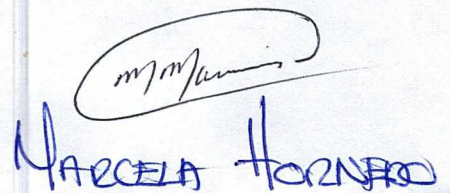 MARCELA HORNERO